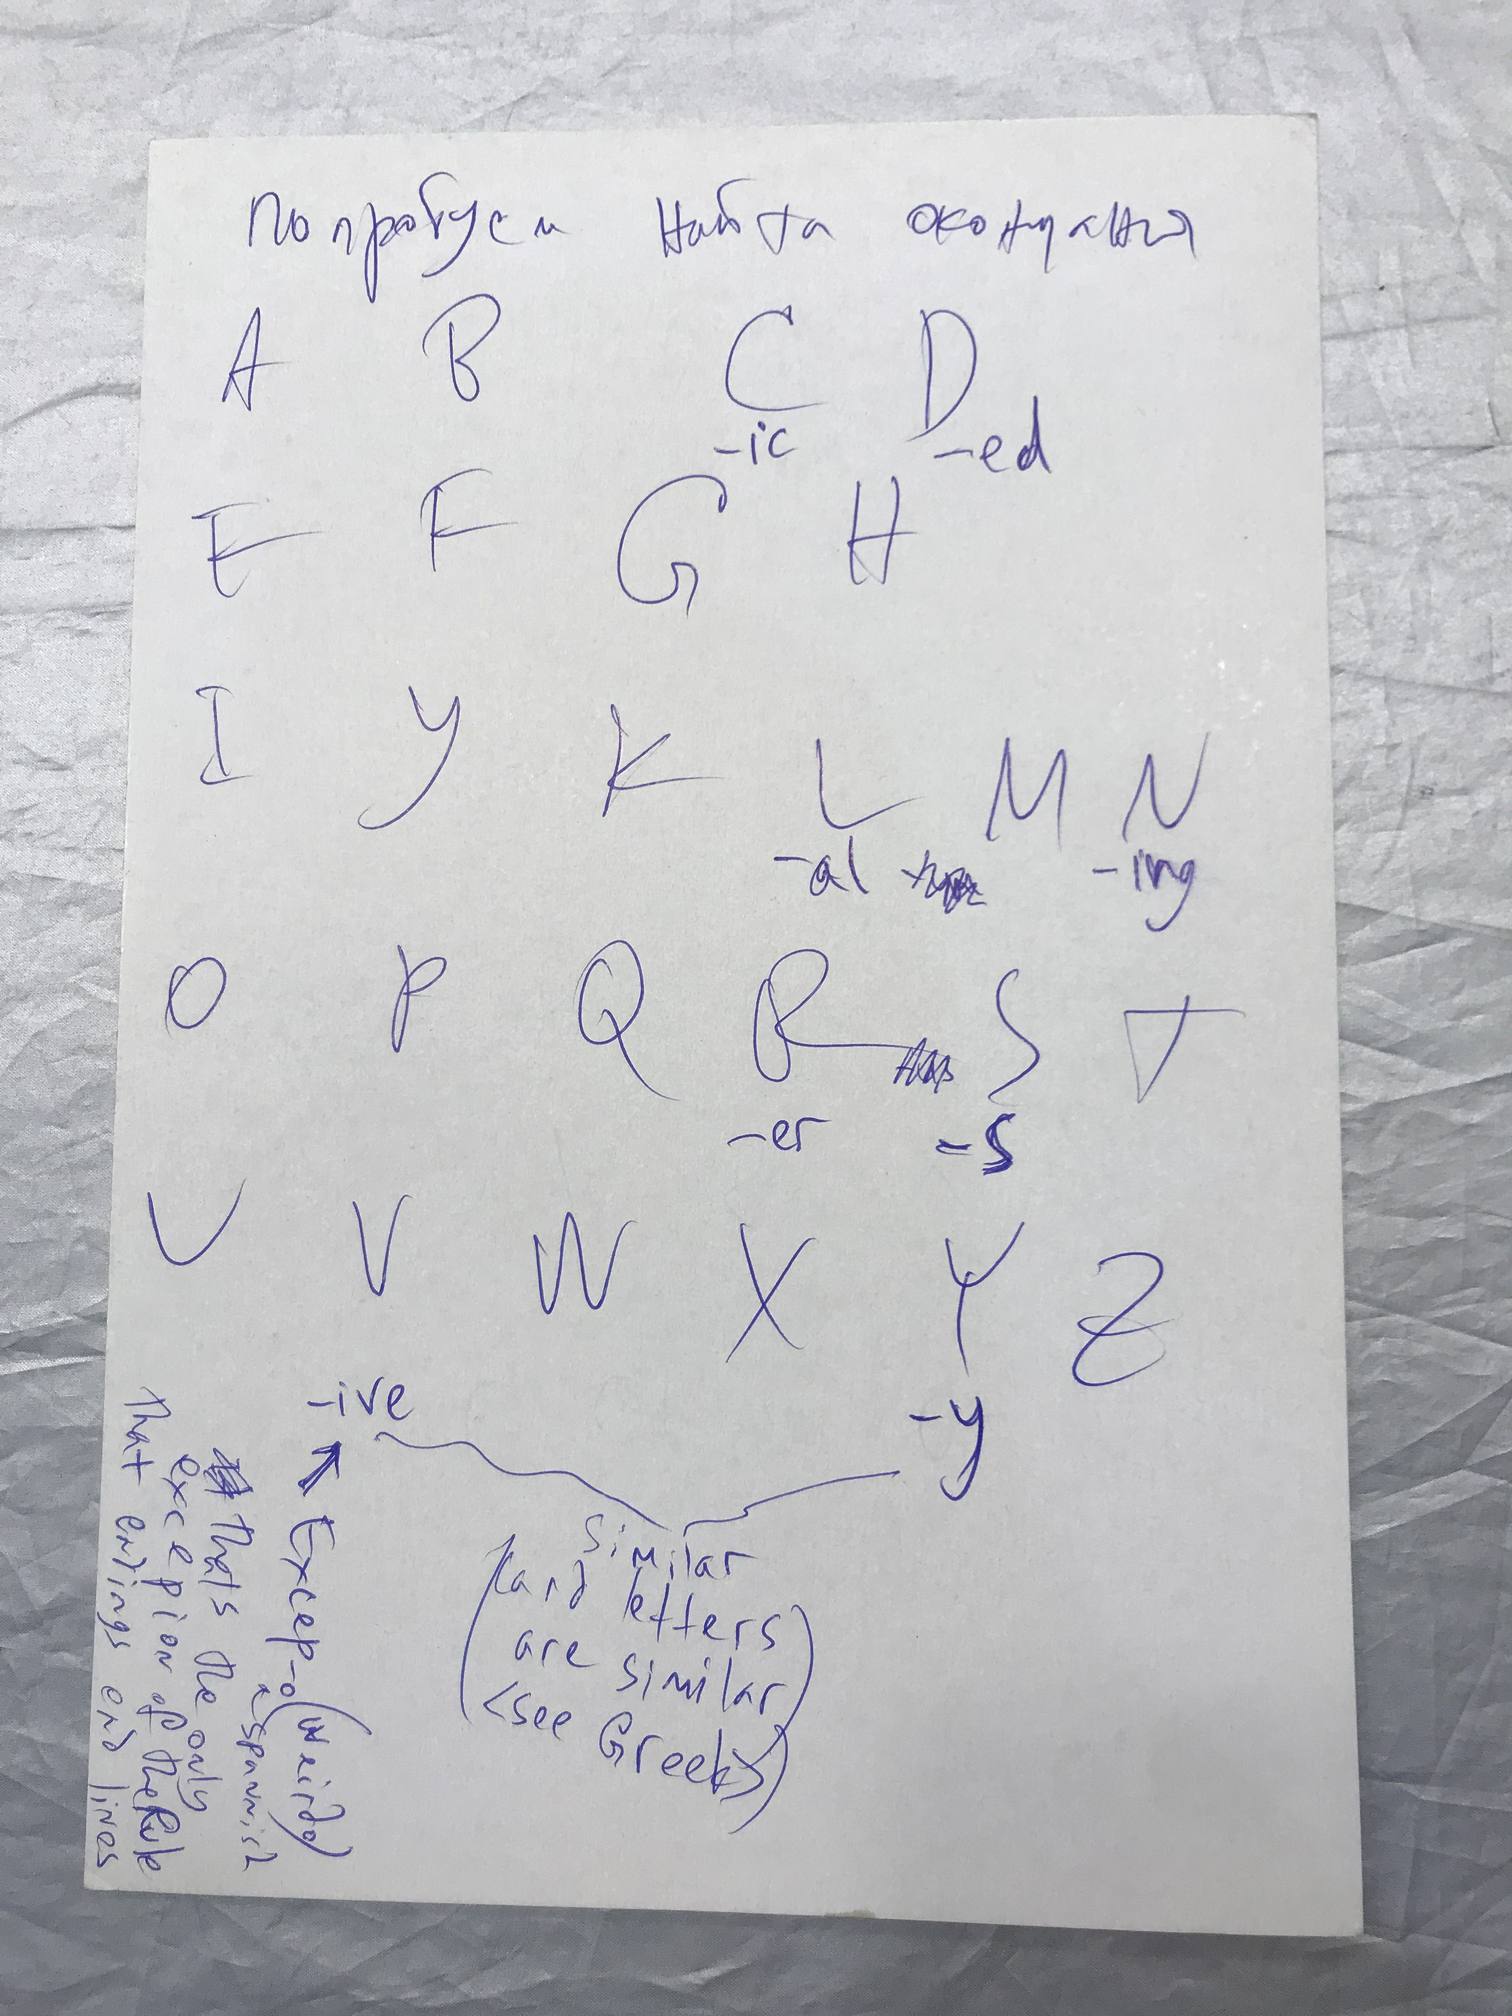 Попробуем найти окончания
A B C D
-ic -ed
E F G H
I y K L M N
-al -ing
O P Q R S T
-er -s
U V W X Y Z
-ive -y
similar
(and letters
are similar
<see Greek>)
Excep-o (weirdo)
spannish
thats the only
excepion of the Rule
that endings end lines